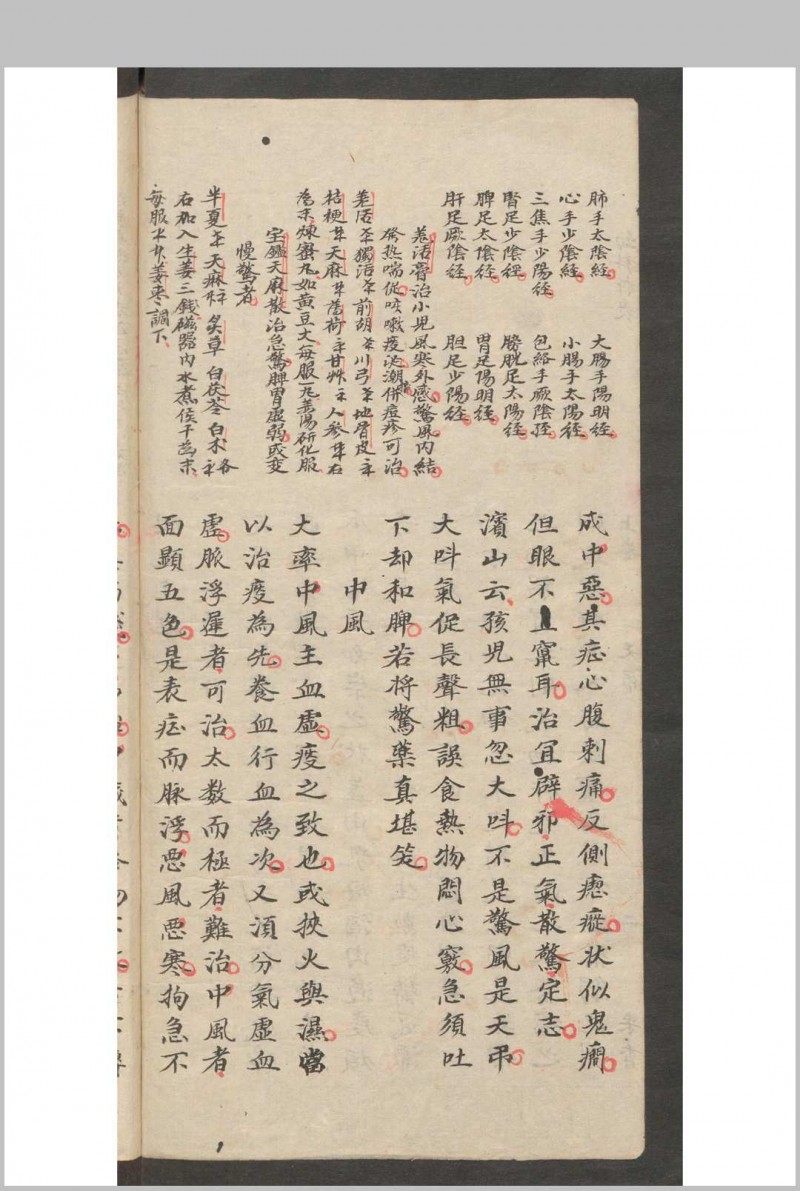 肺手太陰經
大腸手陽明經
心手少陰經
小腸手太陽經
三焦手少陽經
包絡手厥陰經
腎足少陰經
膀胱足太陽經
脾足太陰經
胃足陽明經
肝足厥陰經
胆足少陽經
羗活膏治小児風寒外感驚風內結
發热喘促咳嗽痰涎潮併痘疹可治
羗活 獨活 前胡 川弓 地骨皮
桔梗 天麻 甘艸 人參 右
為末煉蜜丸如黃豆大每服一丸姜湯研化服
宝鑑天麻散治急驚脾胃虛弱或变
慢驚者
半夏 天麻 炙草 白茯苓 白朮 各
右加入生姜三錢磁器內水煮侯干為末
每服 姜枣調下
成中惡其症心腹刺痛反側瘛瘲状似鬼癇
但眼不上竄耳治宜辟邪正氣散驚定志
濱山云孩児無事忽大呌不是驚風是天吊
大呌氣促長聲粗誤食熱物悶心竅急須吐
下却和脾若将驚藥真堪笑
中風
大率中風主血虛痰之致也或挾火與濕當
以治痰為先養血行血為次又須分氣虛血
虛脈浮遲者可治太数而極者難治中風者
面顯五色是表症而脉浮惡風惡寒拘急不